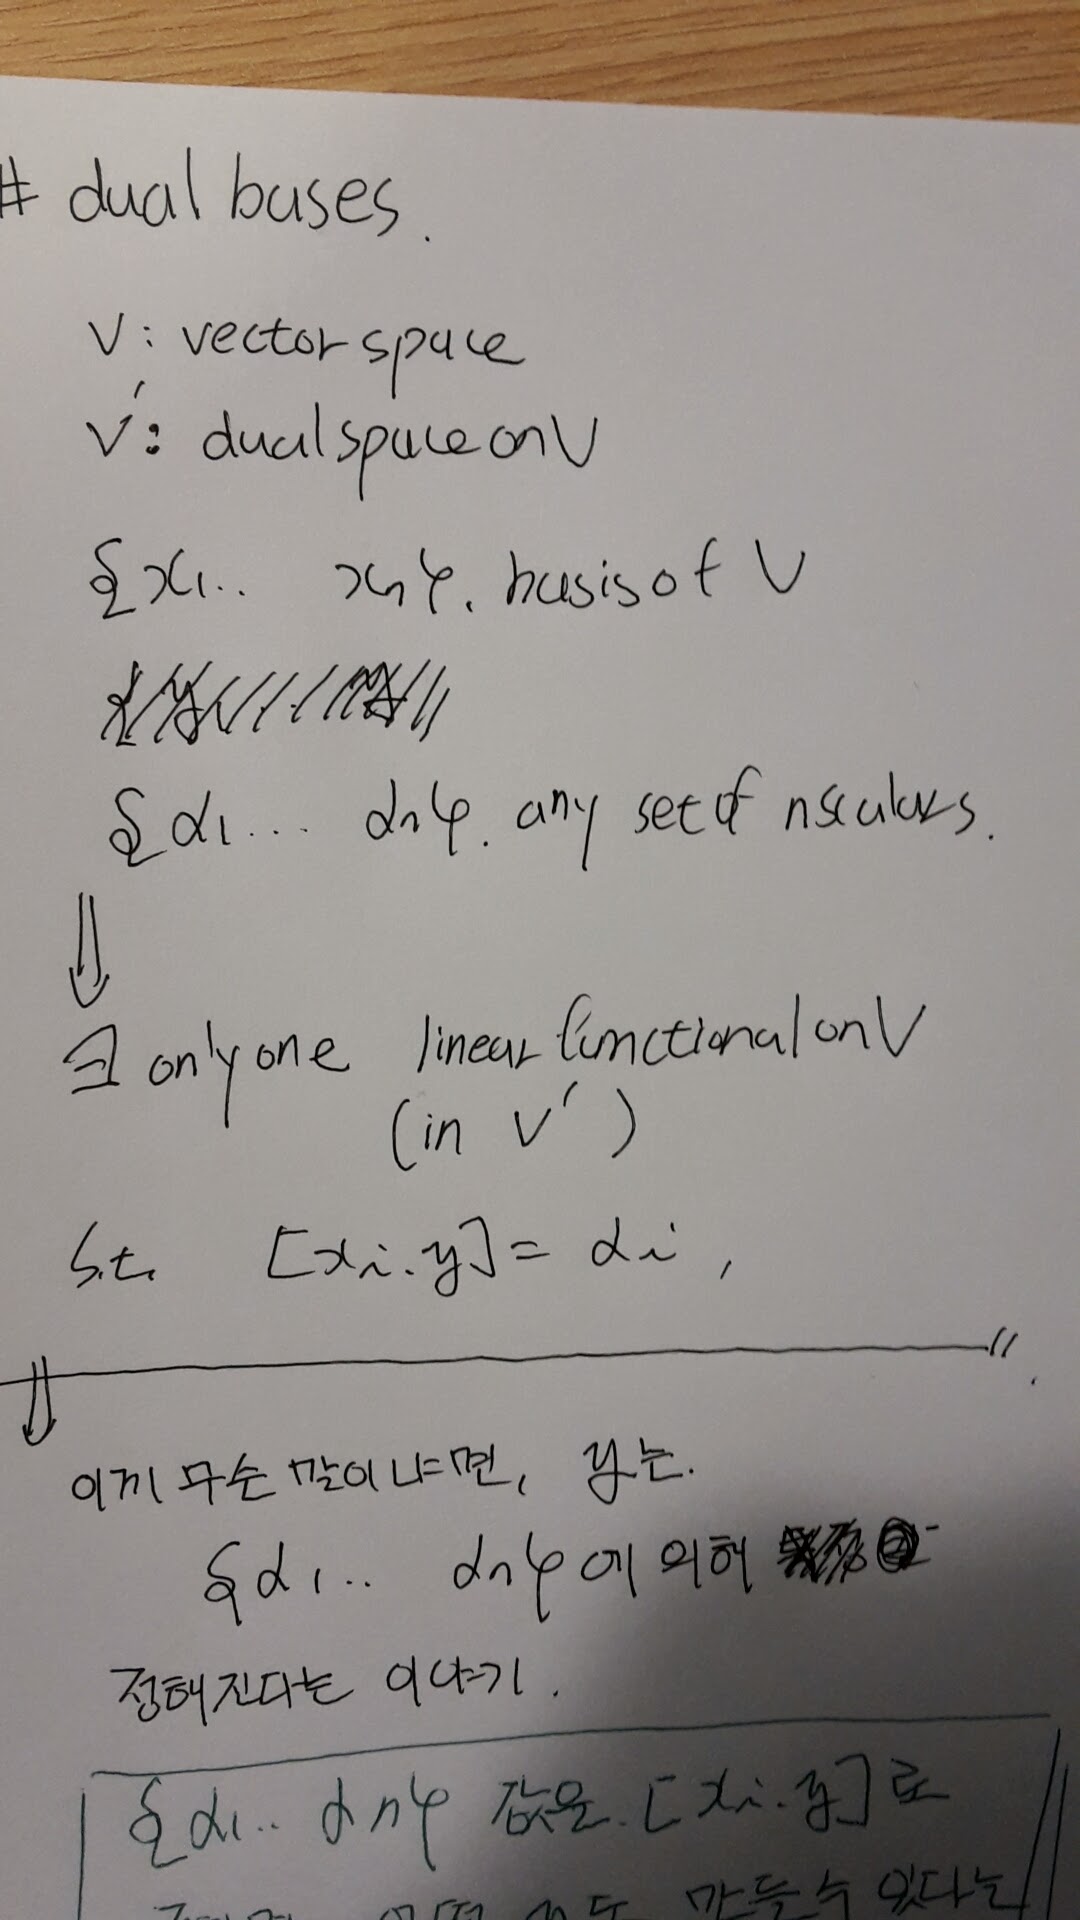 # dual bases.
V : vector space
V': dual space on V
{x₁.. xₙ}. basis of V
{α₁... αₙ}. any set of n scalars.
⇓
∃ only one linear functional on V
(in V')
s.t. [xᵢ. y] = αᵢ,
⇓
이끼 무슨 말이냐면, y는.
{α₁.. αₙ}에 의해
정해진다는 이야기.
{α₁.. αₙ} 값은. [xᵢ. y]로
만들 수 있다는